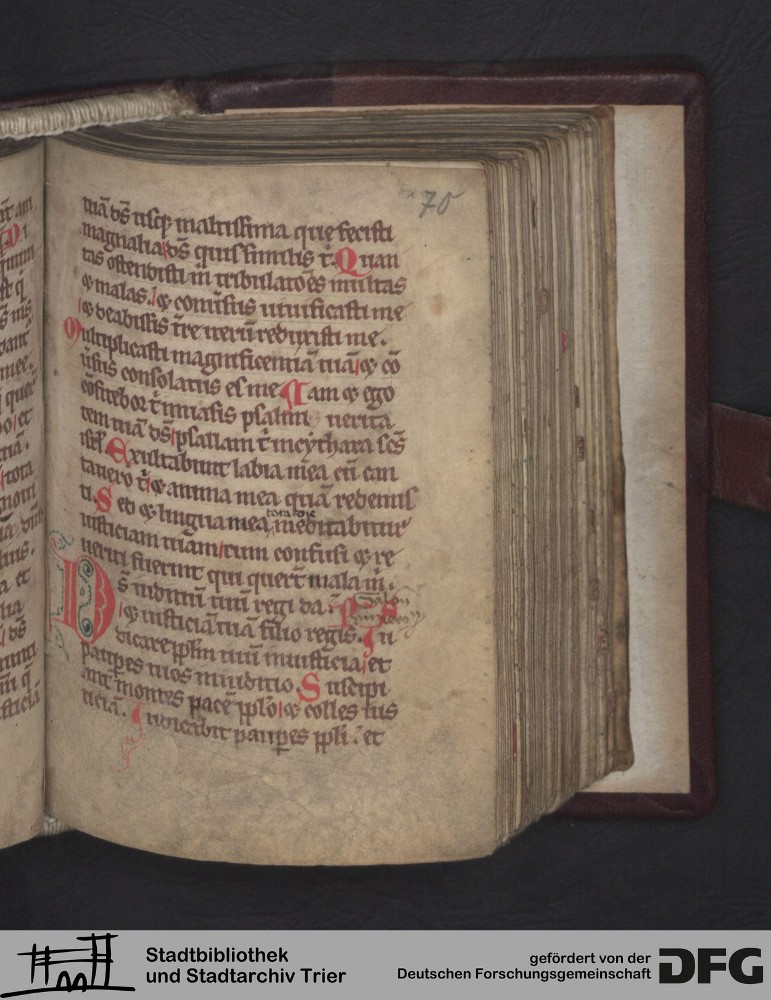 70
tuā ds̄ usq; inaltissima que fecisti
magnalia ds̄ quis similis t̄. Quan
tas ostendisti m̄ tribulatōes multas
& malas. & conuˀsus uiuificasti me
& deabissis t̄re iterū reduxisti me.
Multiplicasti magnificentiā tuā & cō
uˀsus consolatus es me Nam & ego
cōfitebor t̄ inuasis psalmi uerita
tem tuā ds̄ psallam t̄ incythara scs̄
isrł Exultabunt labia mea cū can
tauero t̄ & anima mea quā redemis
ti. Sed & lingua mea tota die meditabitur
iusticiam tuam cum confusi & re
ueriti fuerint qui quer̄t mala m̄.
Ds̄ iuditiū tuū regi da.
& iusticiā tuā filio regis. Iu
dicare pplm̄ tuū iniusticia et
paupes tuos iniuditio. Suscipi
ant montes pacē pplo & colles ius
ticiā. Iudicabit paupes ppli. et
Stadtbibliothek
und Stadtarchiv Trier
gefördert von der
Deutschen Forschungsgemeinschaft
DFG